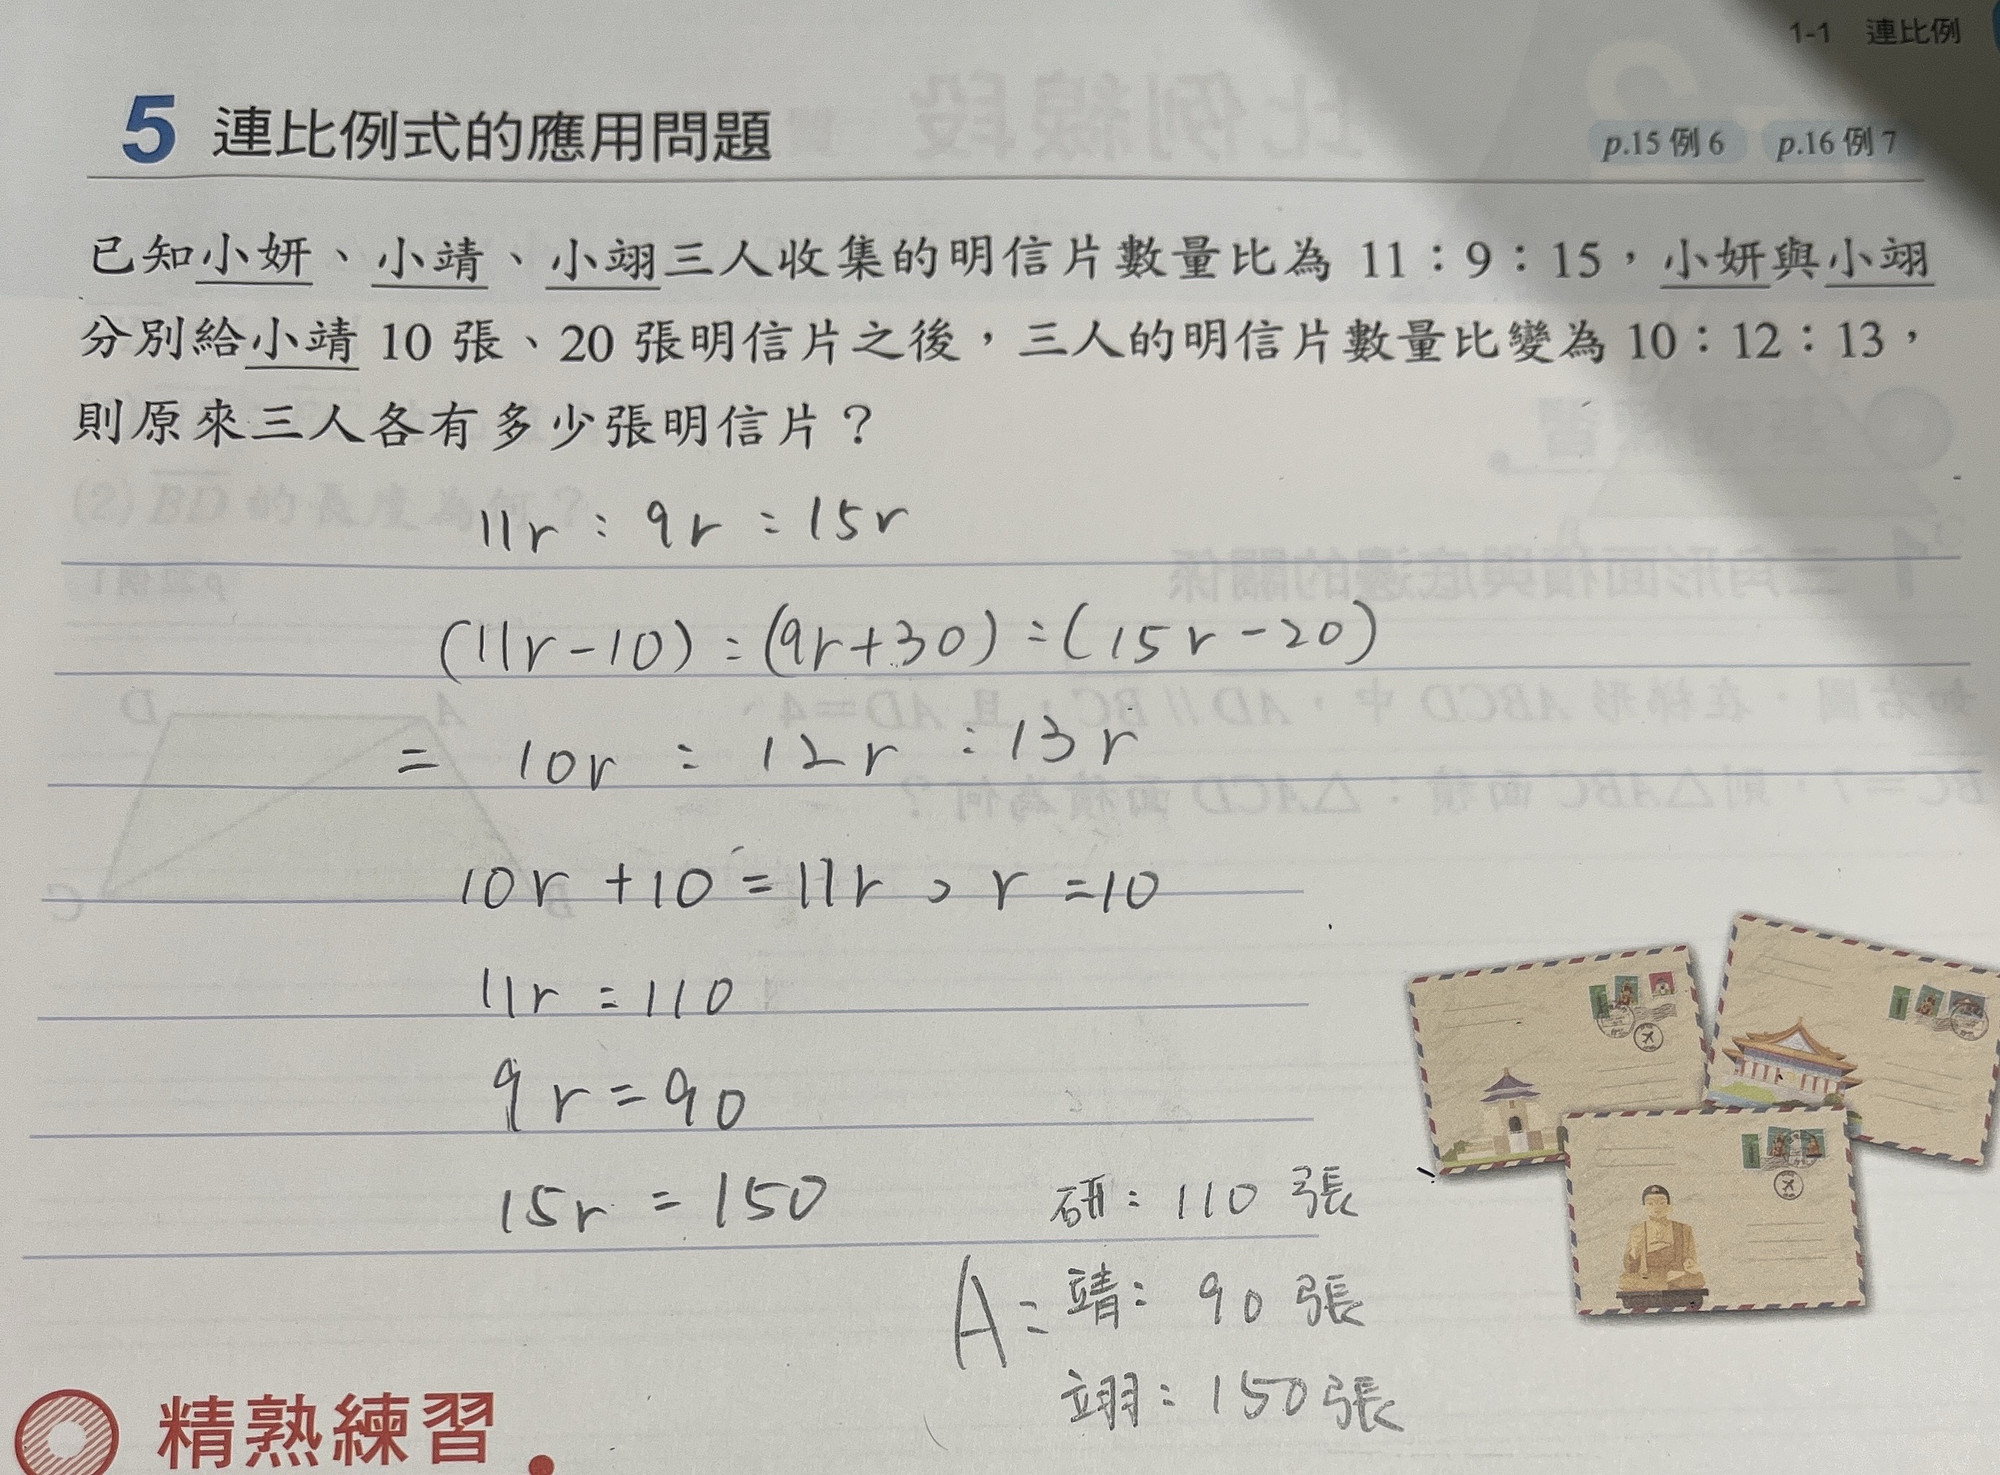 1-1 連比例
5 連比例式的應用問題 p.15 例 6 p.16 例 7
已知小妍、小靖、小翊三人收集的明信片數量比為 11：9：15，小妍與小翊
分別給小靖 10 張、20 張明信片之後，三人的明信片數量比變為 10：12：13，
則原來三人各有多少張明信片？
11r : 9r : 15r
(11r-10) : (9r+30) : (15r-20)
= 10r : 12r : 13r
10r +10 = 11r , r = 10
11r = 110
9r = 90
15r = 150
研: 110 張
A: 靖: 90 張
翊: 150張
精熟練習